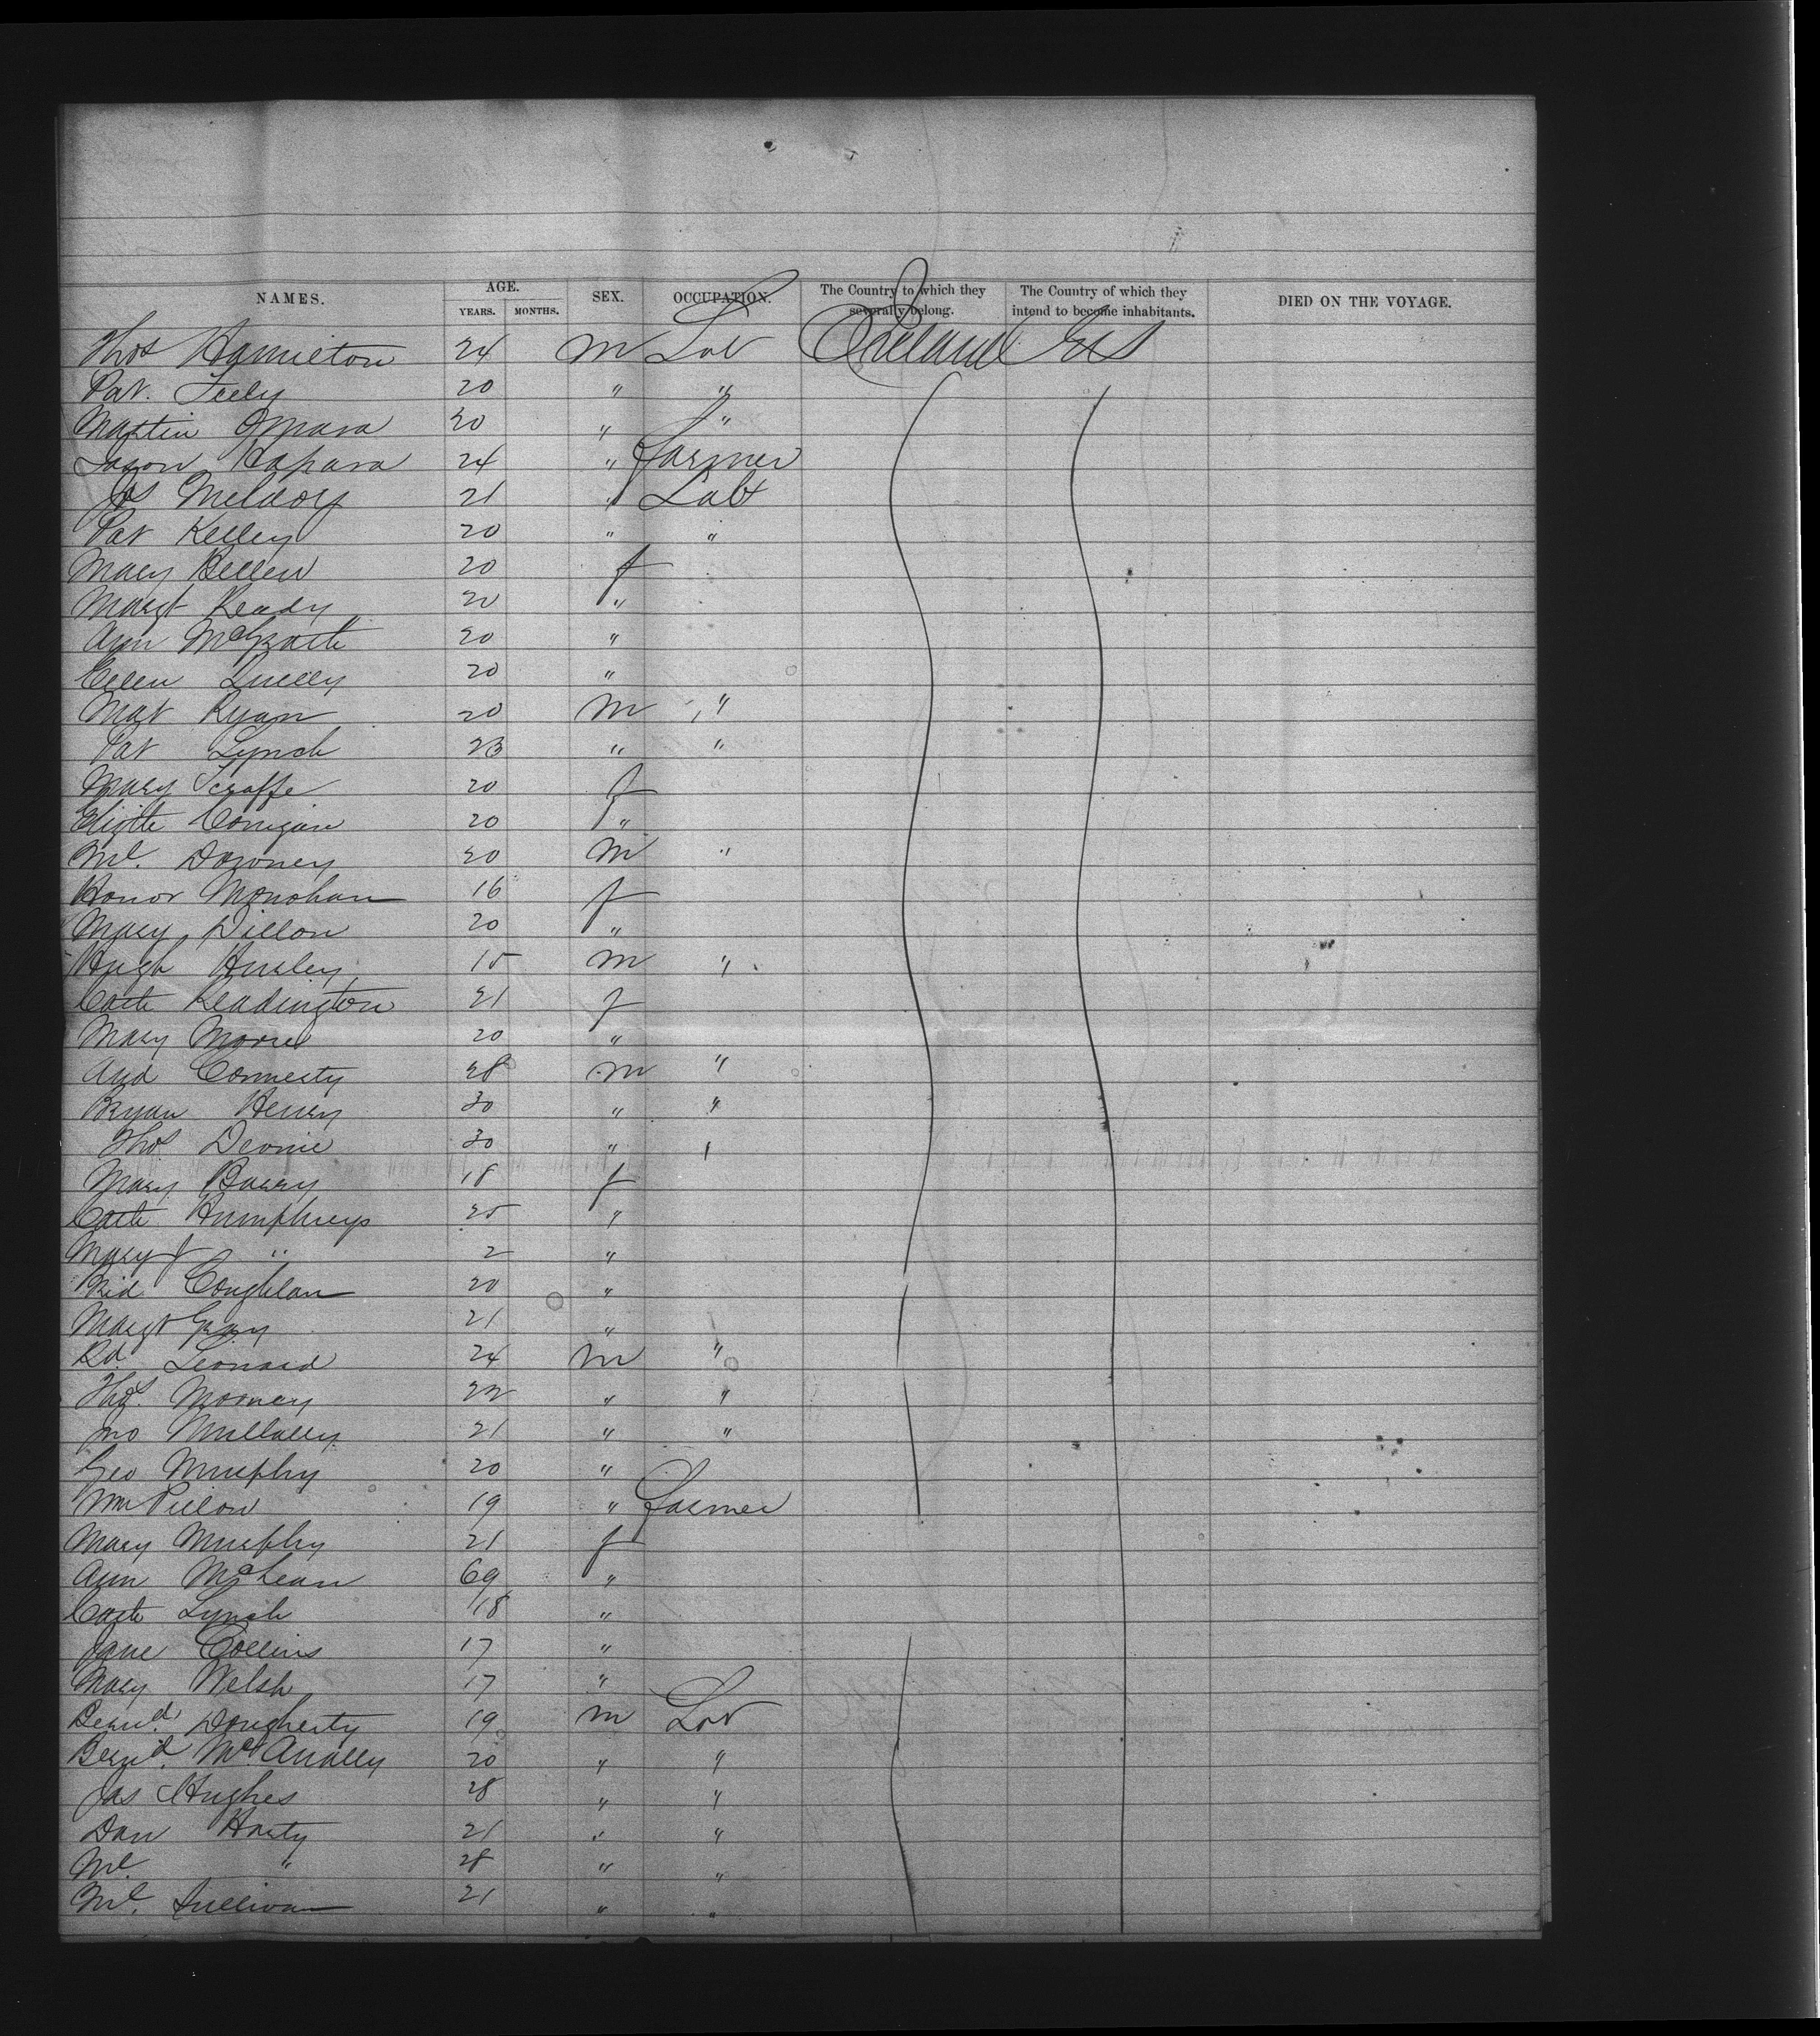 NAMES. AGE. SEX. OCCUPATION. The Country to which they severally belong. The Country of which they intend to become inhabitants. DIED ON THE VOYAGE.
YEARS. MONTHS.
Thos Hamilton 24 m Lab Ireland U S
Pat. Feely 20 " "
Martin Omara 20 " "
24 " Farmer
Jos 21 " Labr
Pat Kelley 20 " "
Mary Bellew 20 f
Margt Ready 20 "
Ann McGrath 20 "
Ellen 20 "
Mat Ryan 20 m "
Pat Lynch 23 " "
Mary 20 f
Elizth Corrigan 20 "
Ml. Downey 20 m "
Honor Monohan 16 f
Mary Dillon 20 "
Hugh Hurley 15 m "
Cath Readington 21 f
Mary Moore 20 "
And 28 m "
Bryan Henry 30 " "
Thos 30 "
Mary Barry 18 f
Cath Humphreys 25 "
Mary J " 2 "
Bid Coughlan 20 "
Margt Gray 21 "
Rd. Leonard 24 m "
Thos. Mooney 22 " "
Jno Mullally 21 " "
Geo Murphy 20 "
Wm Pillow 19 " Farmer
Mary Murphy 21 f
Ann McLean 69 "
Cath Lynch 18 "
Jane Collins 17 "
Mary Welsh 17 "
Bernd. Dougherty 19 m Lab
Bernd. McAnally 20 " "
Jas Hughes 28 " "
Dan Harty 21 " "
Ml. " 28 " "
Ml. Sullivan 21 " "